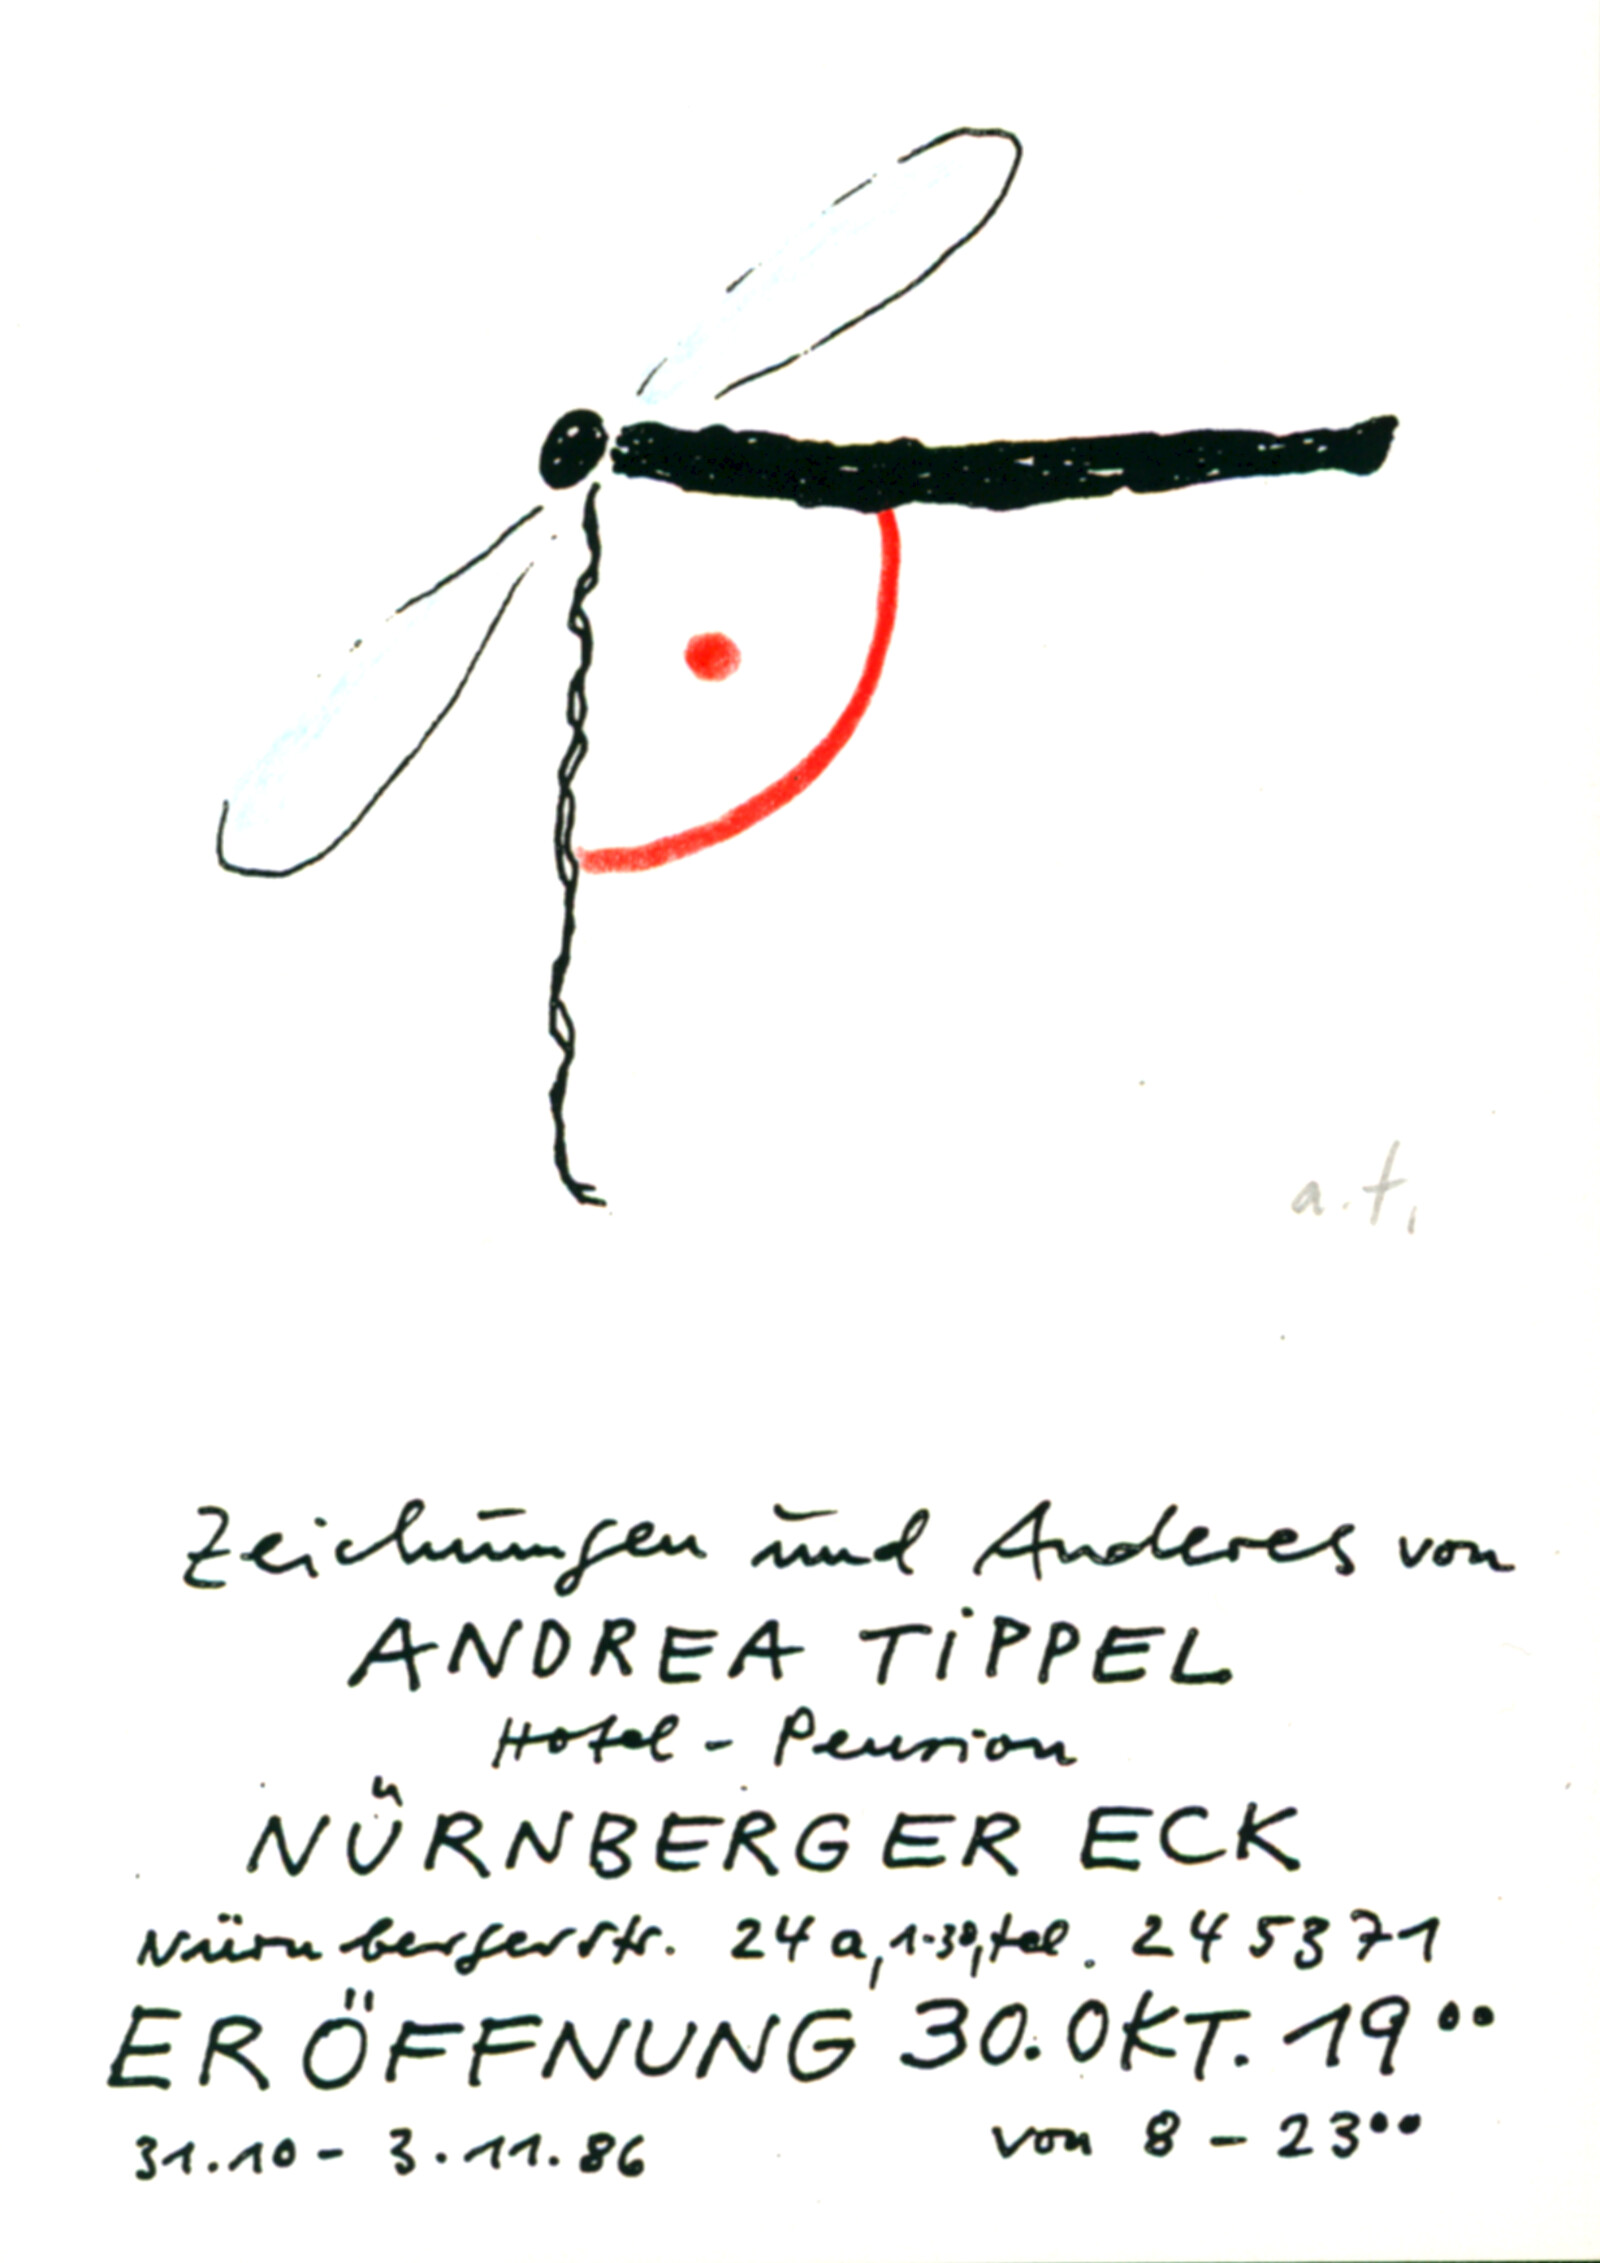 a.t.
Zeichnungen und Anderes von
ANDREA TiPPEL
Hotel - Pension
NÜRNBERGER ECK
Nürnbergerstr. 24a, tel. 245371
ERÖFFNUNG 30.OKT. 19°°
31.10 - 3.11.86 von 8 - 23°°